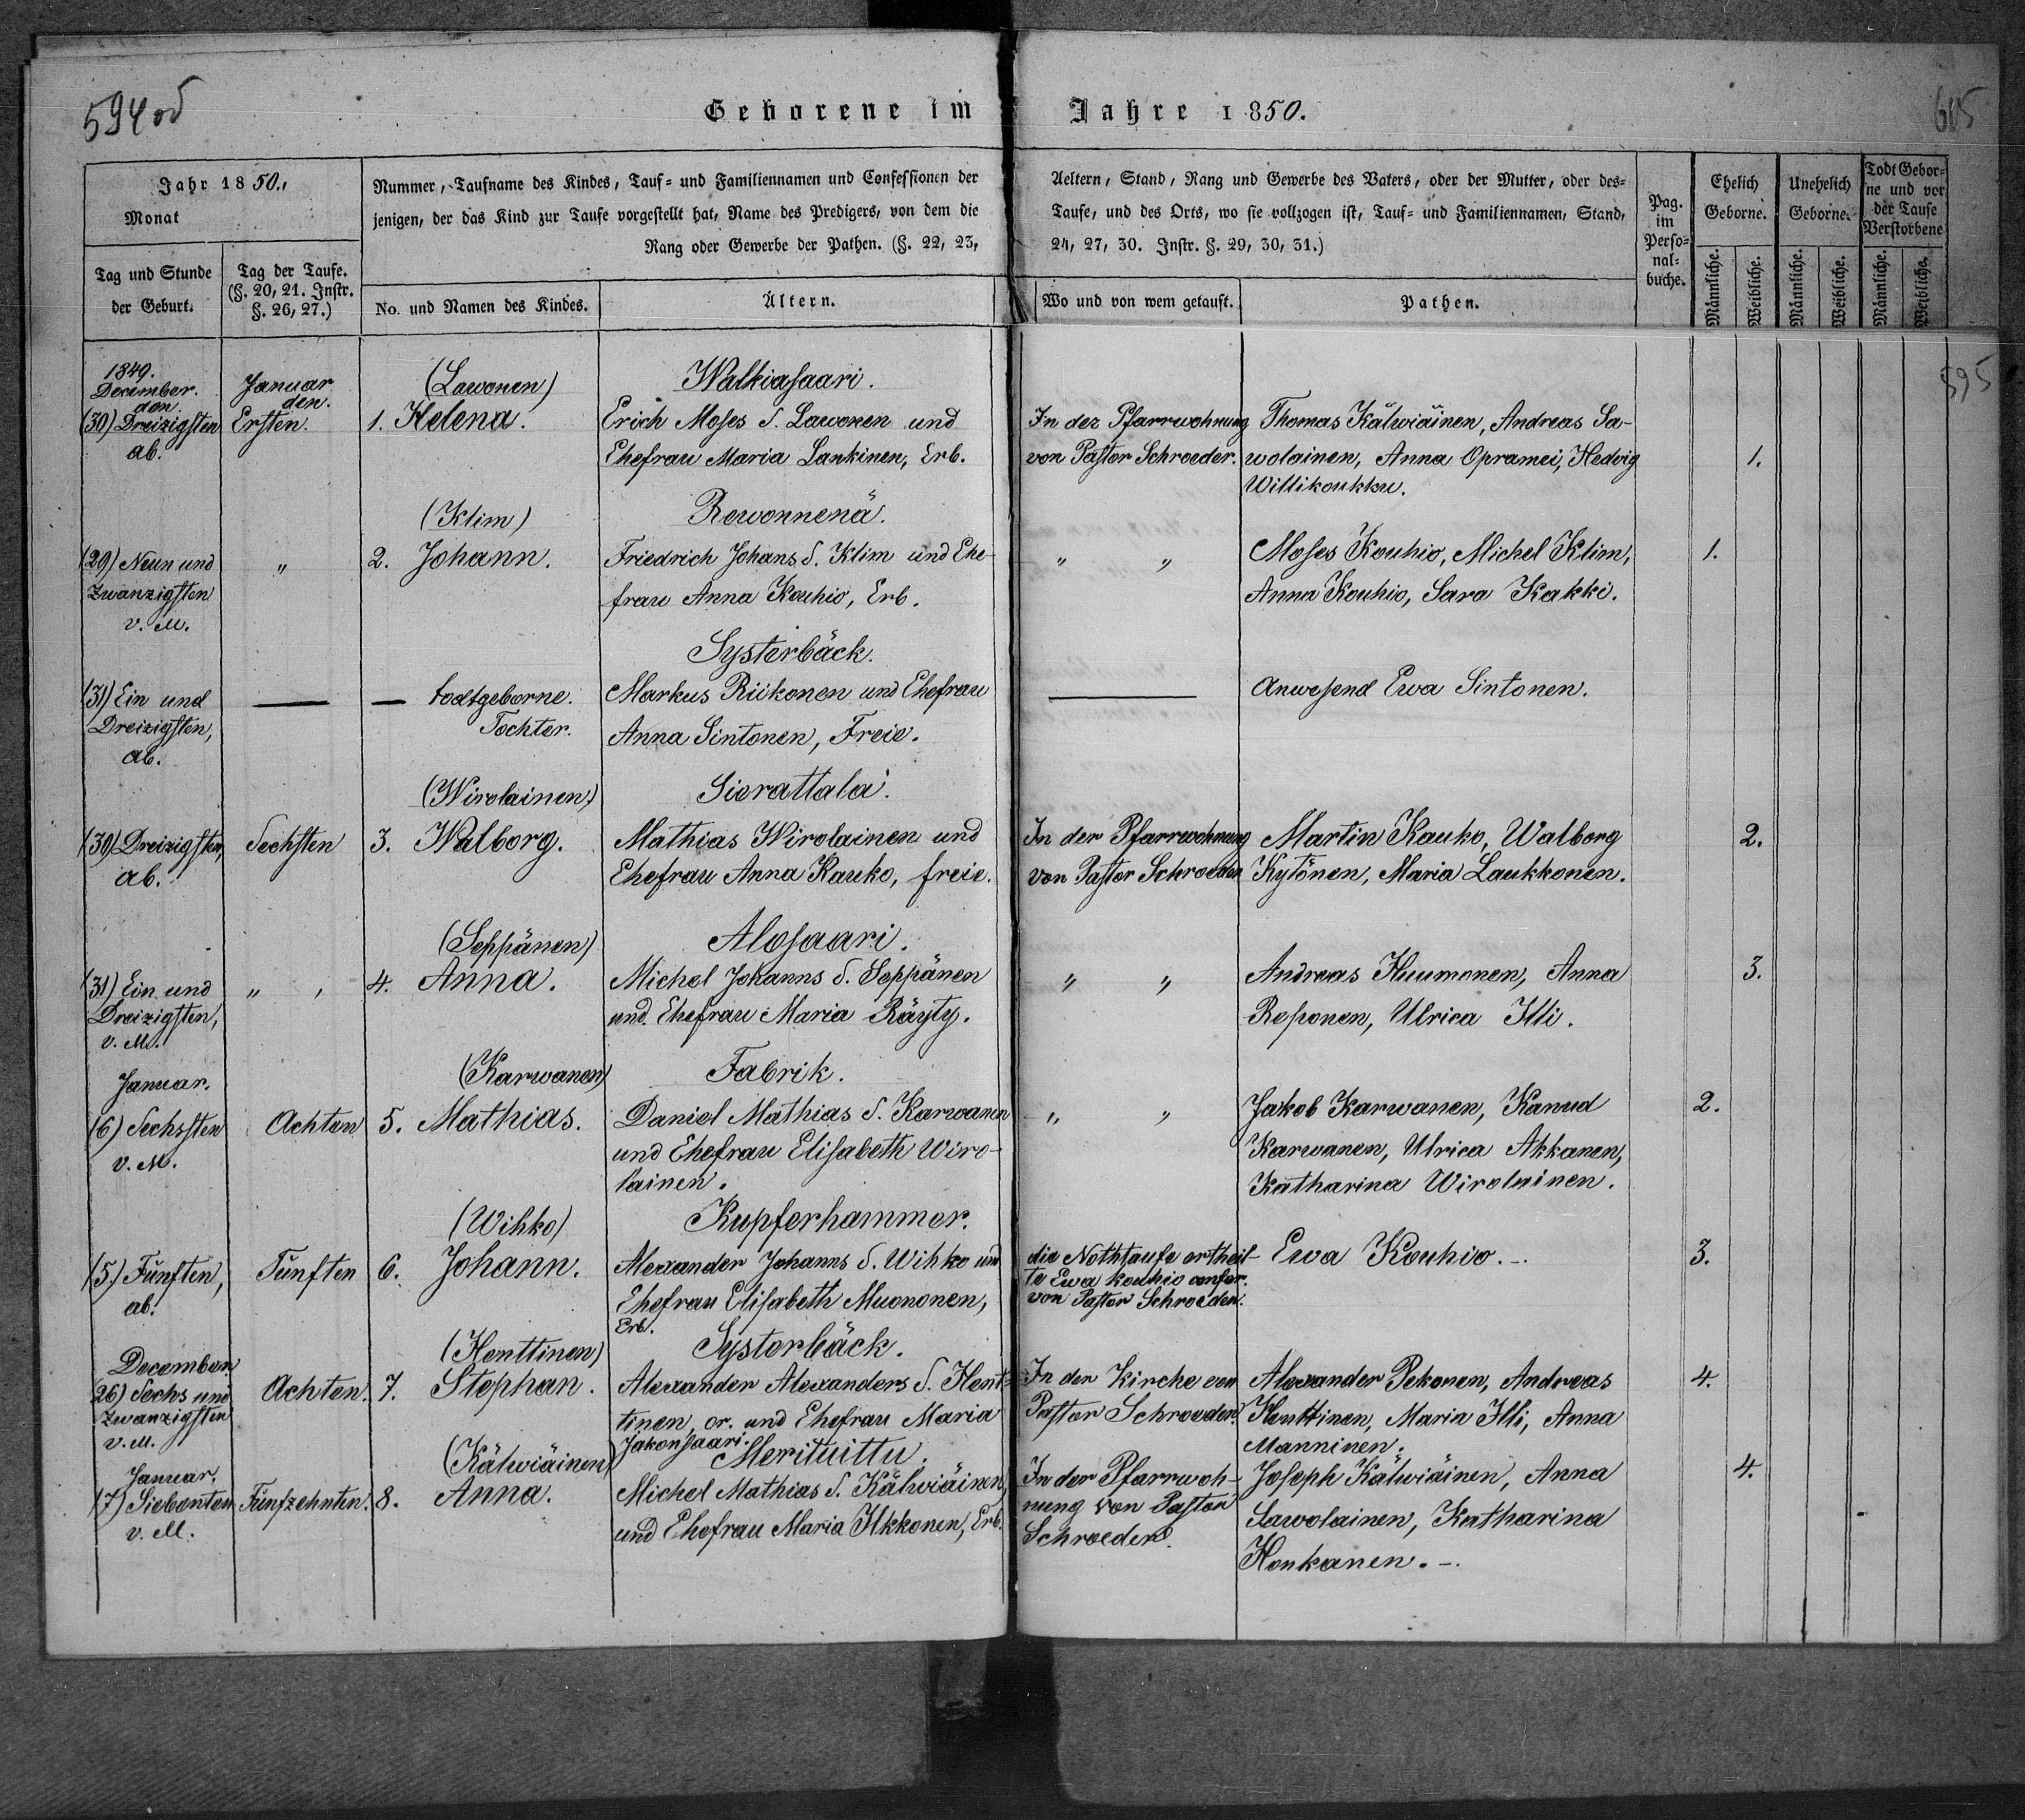 594
Geborene im Jahre 1850.
605
Jahr 1850.,
Monat
Tag und Stunde
der Geburt.
Tag der Taufe.
(§. 20, 21. Instr.
§. 26, 27.)
Nummer, Taufname des Kindes, Tauf- und Familiennamen und Confessionen der
jenigen, der das Kind zur Taufe vorgestellt hat, Name des Predigers, von dem die
Rang oder Gewerbe der Pathen. (§. 22, 23,
No. und Namen des Kindes.
Ältern.
Aeltern, Stand, Rang und Gewerbe des Vaters, oder der Mutter, oder des-
Taufe, und des Orts, wo sie vollzogen ist, Tauf- und Familiennamen, Stand,
24, 27, 30. Instr. §. 29, 30, 31.)
Wo und von wem getauft.
Pathen.
Pag.
im
Perso-
nal-
buche.
Ehelich
Geborne.
Unehelich
Geborne.
Todt Gebor-
ne und vor
der Taufe
Verstorbene
Männliche.
Weibliche.
Männliche.
Weibliche.
Männliche.
Weiblichs.
595
1849.
December.
den.
(30) Dreizigsten
ab.
Januar
den.
Ersten.
(Lawonen)
1. Helena.
Walkiasaari.
Erich Moses S. Lawonen und
Ehefrau Maria Lankinen, Erb.
In der Pfarrwohnung
von Pastor Schroeder.
Thomas Kälwiäinen, Andreas Sa-
wolainen, Anna Opramei, Hedvig
Willikoukku.
1.
(29) Neun und
Zwanzigsten
v. M.
"
(Klim)
2. Johann.
Rewonnenä.
Friedrich Johans S. Klim und Ehe-
frau Anna Kouhio, Erb.
" "
Moses Kouhio, Michel Klim,
Anna Kouhio, Sara Kakki.
1.
(31) Ein und
Dreizigsten,
ab.
todtgeborne.
Tochter.
Systerbäck.
Markus Riikonen und Ehefrau
Anna Sintonen, Freie.
Anwesend Ewa Sintonen.
(30) Dreizigsten,
ab.
Sechsten
(Wirolainen)
3. Walborg.
Sierattala.
Mathias Wirolainen und
Ehefrau Anna Kauko, freie.
In der Pfarrwohnung
von Pastor Schroeder
Martin Kauko, Walborg
Kytönen, Maria Laukkonen.
2.
(31) Ein und
Dreizigsten,
v. M.
" "
(Seppänen)
4. Anna.
Alosaari.
Michel Johanns S. Seppänen
und Ehefrau Maria Räyty.
" "
Andreas Huumonen, Anna
Reponen, Ulrica Illi.
3.
Januar.
(6) Sechsten
v. M.
Achten
(Karwanen)
5. Mathias.
Fabrik.
Daniel Mathias S. Karwanen
und Ehefrau Elisabeth Wiro-
lainen.
" "
Jakob Karwanen, Kanud
Karwanen, Ulrica Akkanen,
Katharina Wirolainen.
2.
(5) Fünften,
ab.
Fünften
(Wihko)
6. Johann.
Kupferhammer.
Alexander Johanns S. Wihko und
Ehefrau Elisabeth Muononen,
Erb.
die Nothtaufe ertheil-
te Ewa Kouhio confer.
von Pastor Schroeder.
Ewa Kouhio.
3.
December
(26) Sechs und
Zwanzigsten
v. M.
Achten.
(Henttinen)
7. Stephan.
Systerbäck.
Alexander Alexanders S. Hent-
tinen, or. und Ehefrau Maria
Jakonsaari.
In der Kirche von
Pastor Schroeder.
Alexander Pekonen, Andreas
Henttinen, Maria Illi, Anna
Manninen.
4.
Januar.
(7) Siebenten
v. M.
Fünfzehnten.
(Kälwiäinen)
8. Anna.
Merituittu.
Michel Mathias S. Kälwiäinen,
und Ehefrau Maria Ilkkonen, Erb.
In der Pfarrwoh-
nung von Pastor
Schroeder.
Joseph Kälwiäinen, Anna
Sawolainen, Katharina
Honkanen.
4.